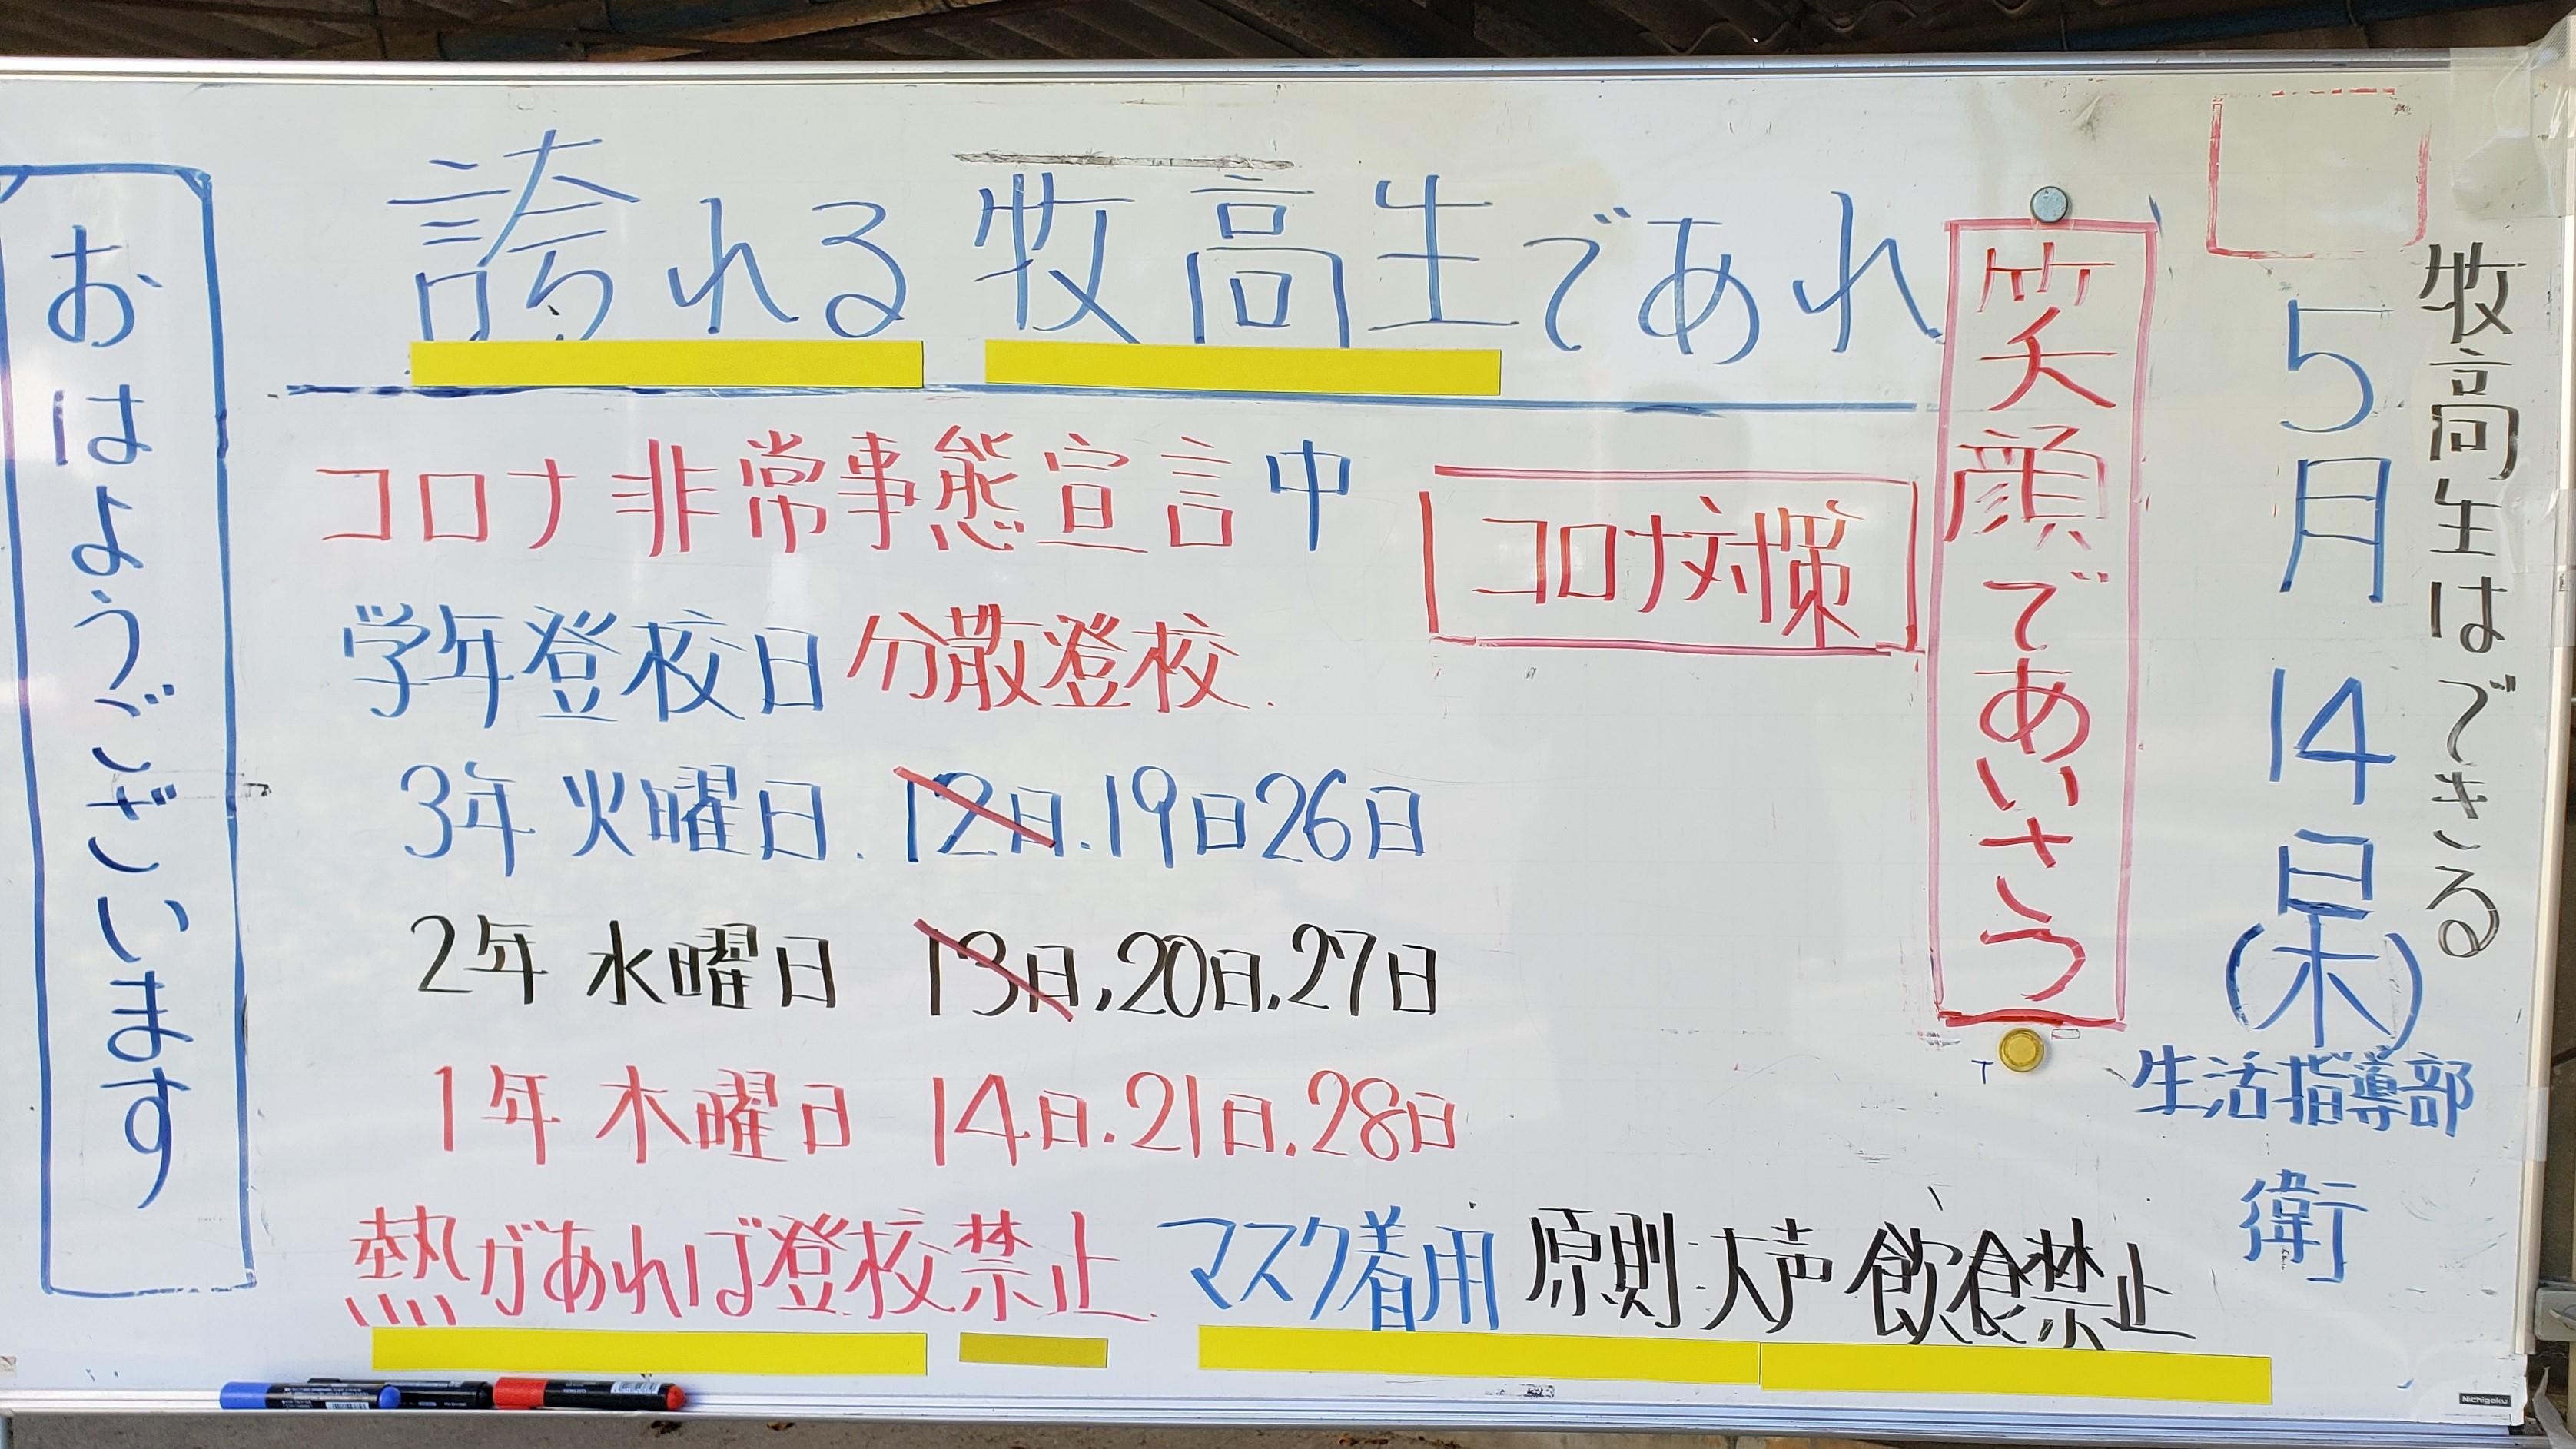 牧高生はできる
5月14日(木)
生活指導部
衛
笑顔であいさつ
誇れる牧高生であれ
コロナ対策
コロナ非常事態宣言中
学年登校日 分散登校.
3年 火曜日. 12日.19日26日
2年 水曜日 13日,20日.27日
1年 木曜日 14日.21日.28日
熱があれば登校禁止. マスク着用 原則 大声 飲食禁止
おはようございます
Nichigaku